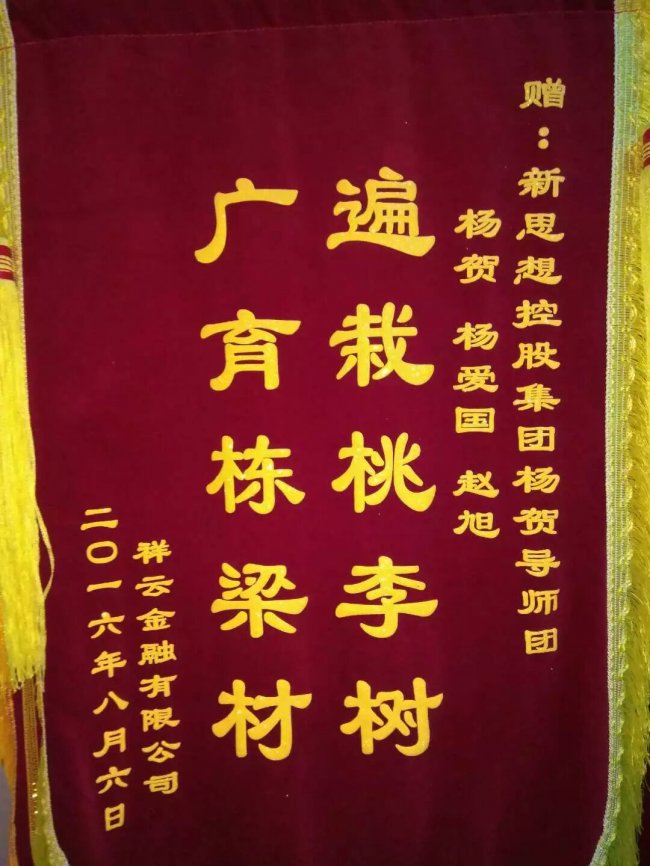 赠：新思想控股集团杨贺导师团
杨贺 杨爱国 赵旭
遍栽桃李树
广育栋梁材
祥云金融有限公司
二〇一六年八月六日